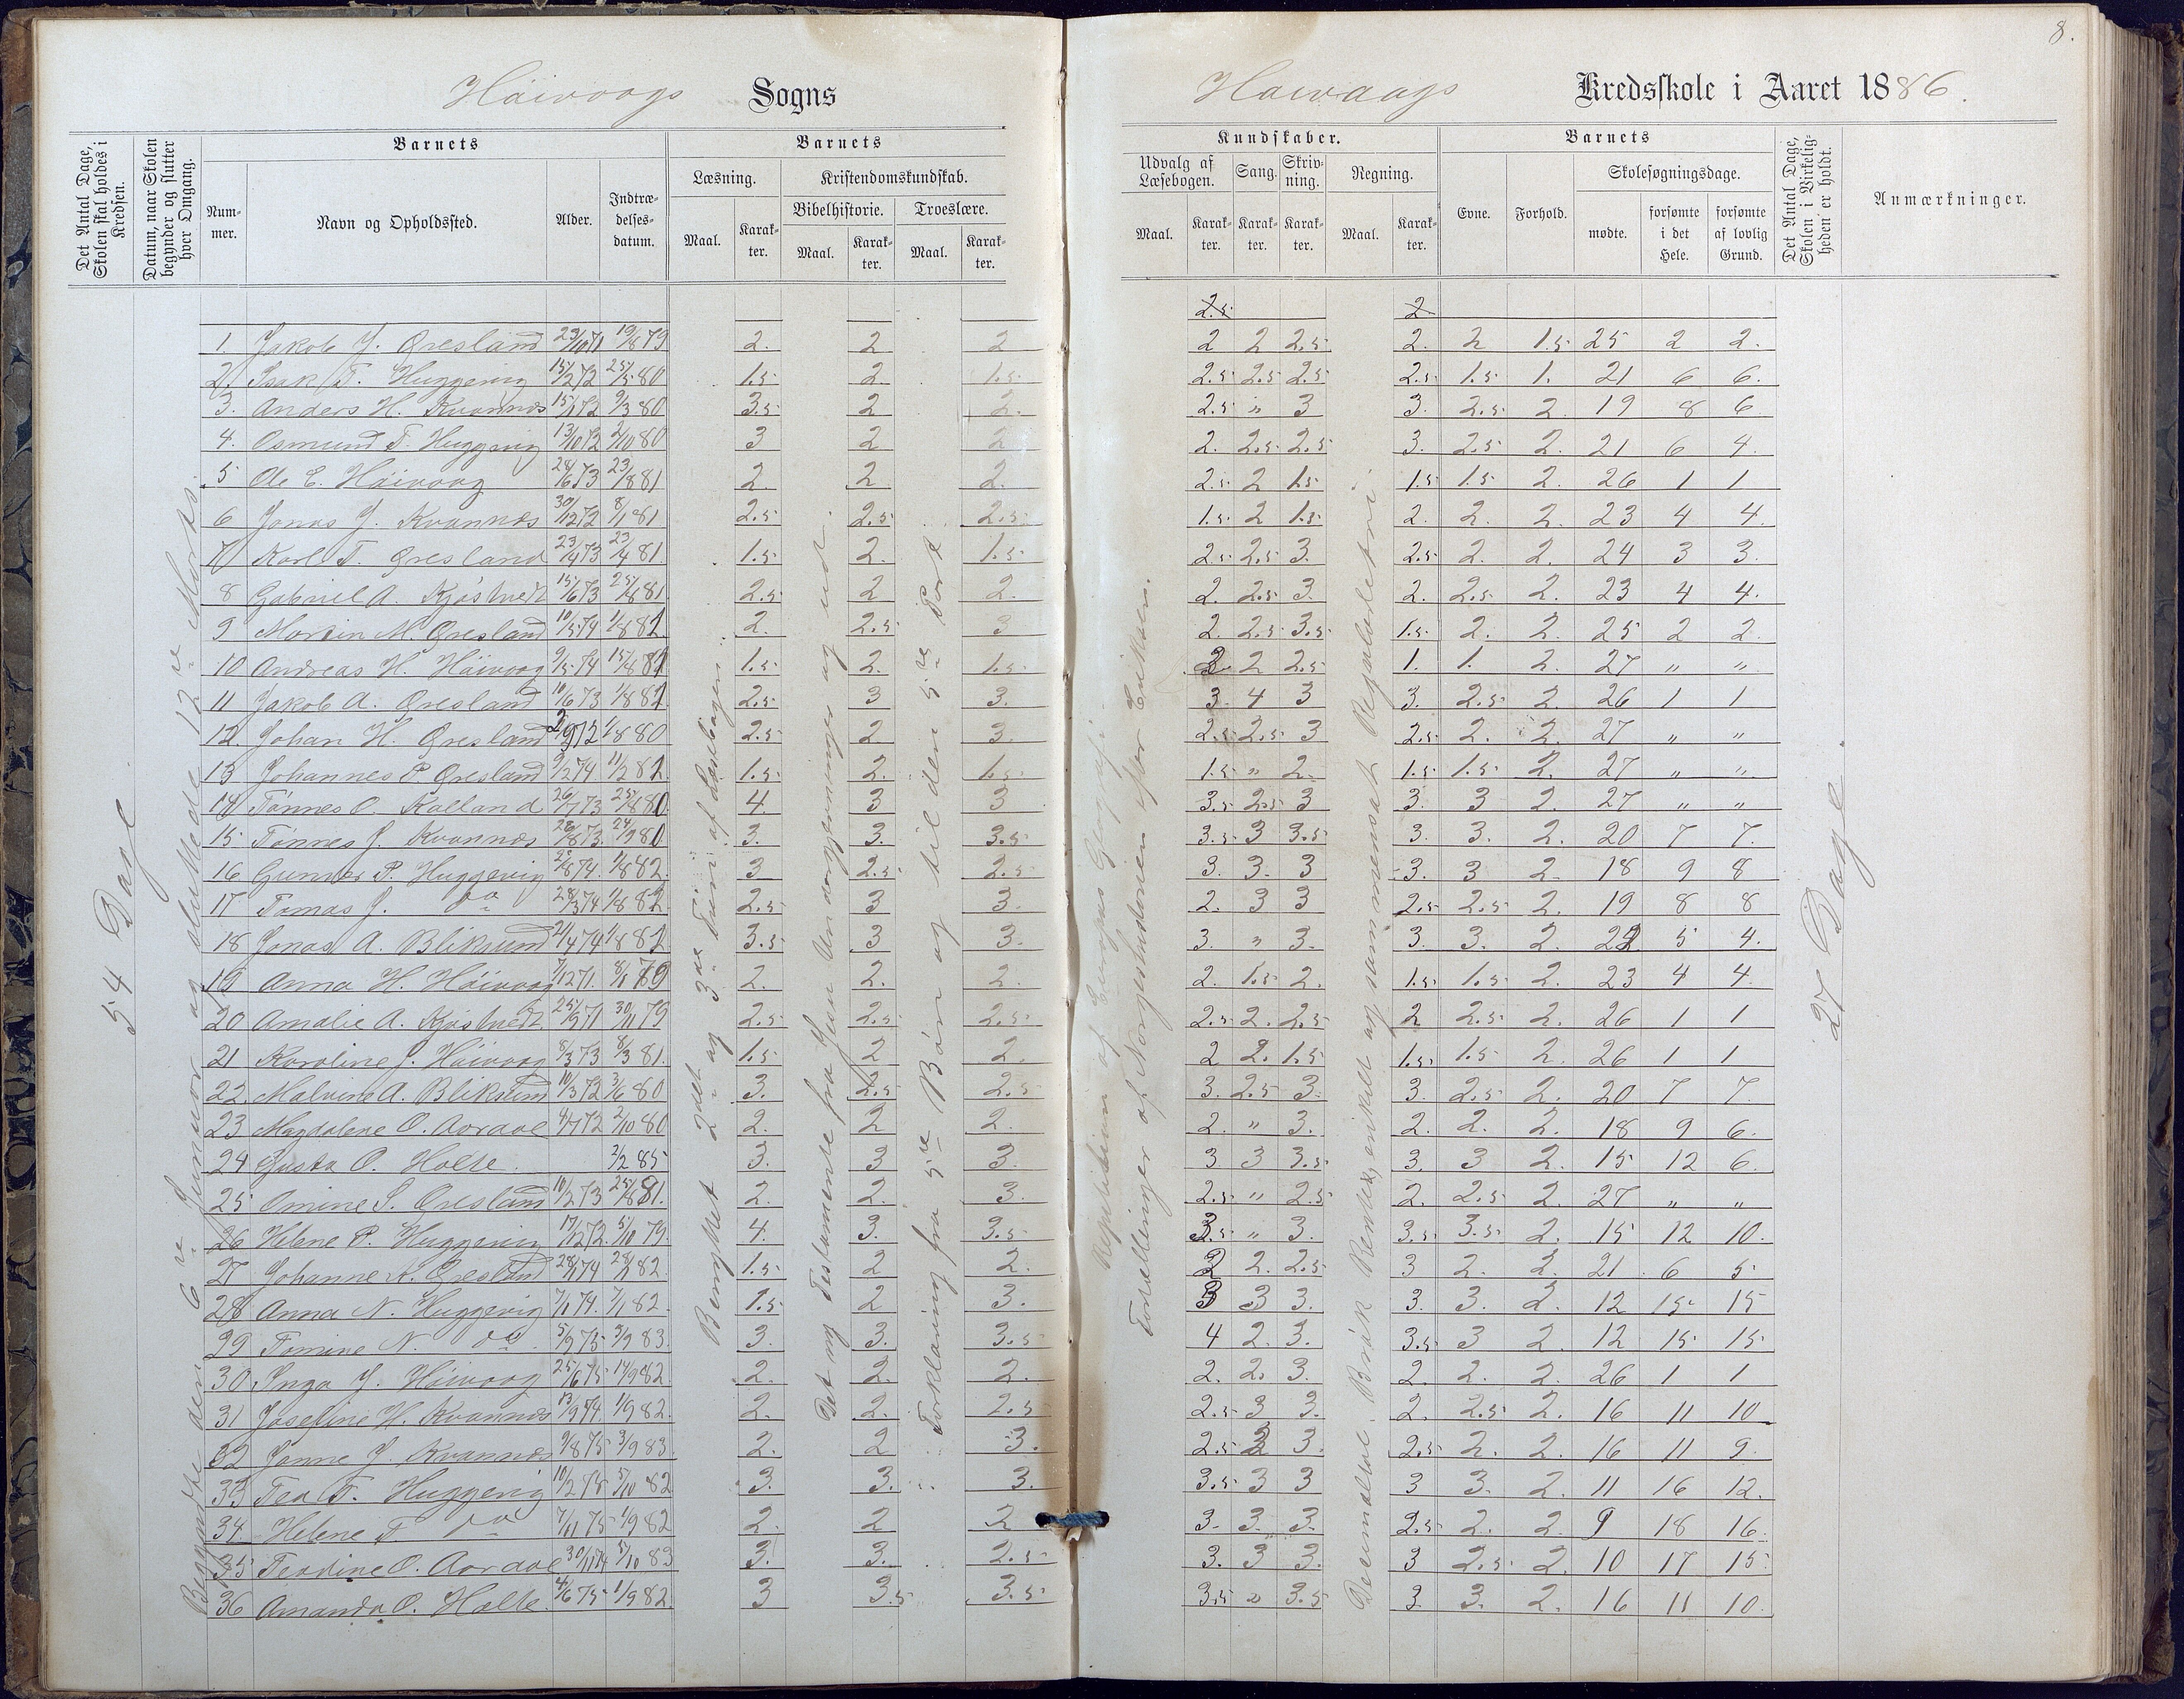 8.
Høivaags Sogns
Høivaags Kredsskole i Aaret 1886.
Det Antal Dage, Skolen skal holdes i Kredsen.
Datum, naar Skolen begynder og slutter hver Omgang.
Barnets
Num-mer.
Navn og Opholdssted.
Alder.
Indtræ-delses-datum.
Barnets
Læsning.
Kristendomskundskab.
Bibelhistorie.
Troeslære.
Maal.
Karak-ter.
Maal.
Karak-ter.
Maal.
Karak-ter.
Kundskaber.
Udvalg af Læsebogen.
Sang.
Skriv-ning.
Regning.
Maal.
Karak-ter.
Karak-ter.
Karak-ter.
Maal.
Karak-ter.
Barnets
Evne.
Forhold.
Skolesøgningsdage.
mødte.
forsømte i det Hele.
forsømte af lovlig Grund.
Det Antal Dage, Skolen i Virkelig-heden er holdt.
Anmærkninger.
54 Dage
Begyndte den 6te Januar og sluttede 12te Marts.
Benyttet 2det og 3die Trin af Læsebogen.
Det ny Testamente fra Jesu Undergjerninger og ud.
Forklaring fra 5te Bøn og til den 5te Part
Repetition af Europas Geografi.
Fortællinger af Norgeshistorien efter Eriksen.
Decimaltal. Brøk. Rentes, enkelt og sammensat Reguladetri.
27 Dage.
2.5 2
1. Jakob J. Øresland 23/10 71 19/8 79 2. 2 2 2 2 2.5 2. 2 1.5 25 2 2.
2. Isak T. Huggevig 15/2 72 25/5 80 1.5 2. 1.5 2.5 2.5 2.5 2.5 1.5 1. 21 6 6.
3. Anders H. Kvannes 15/1 72 9/3 80 3.5 2 2. 2.5 " 3 3. 2.5 2. 19 8 6
4. Osmund T. Huggevig 13/10 72 2/10 80 3 2 2 2. 2.5 2.5 3. 2.5 2. 21 6 4.
5 Ole E. Høivaag 28/6 73 23/8 81 2 2 2. 2.5 2 1.5 1.5 1.5 2. 26 1 1
6 Jonas J. Kvannes 30/12 72 8/1 81 2.5 2.5 2.5 1.5 2 1.5 2. 2. 2. 23 4 4.
7 Karl T. Øresland 23/4 73 23/4 81. 1.5 2. 1.5 2.5 2.5 3. 2.5 2. 2. 24 3 3.
8 Gabriel A. Kjøstvedt 15/6 73 25/8 81 2.5 2 2. 2. 2.5 3. 2. 2.5 2. 23 4 4.
9 Martin M. Øresland 10/5 74 1/8 82. 2. 2.5 3 2. 2.5 3.5 1.5 2. 2. 25 2 2.
10 Andreas H. Høivaag 9/5 74 15/8 82 1.5 2. 1.5 2. 2 2.5 1. 1. 2. 27 " "
11 Jakob A. Øresland 10/6 73 1/8 82 2.5 3 3. 3. 4 3 3. 2.5 2. 26 1 1
12. Johan H. Øresland 2/9 72 1/8 80 2.5 2. 3. 2.5 2.5 3 2.5 2. 2. 27 " "
13 Johannes P. Øresland 9/2 74. 11/2 82. 1.5 2. 1.5 1.5 " 2. 1.5 1.5 2. 27 " "
14 Tønnes O. Kalland 26/7 73 25/8 80 4 3 3 3.5 2.5 3 3. 3 2. 27 " "
15 Tønnes J. Kvannes 28/8 73. 24/9 80 3. 3. 3.5 3.5 3 3.5 3. 3. 2. 20 7 7.
16 Gunder P. Huggevig 28/8 74. 1/8 82. 3 2.5 2.5 3. 3. 3 3. 3 2. 18 9 8
17 Tomas J. do 28/3 74 1/8 82. 2.5 3 3. 2. 3 3 2.5 2.5 2. 19 8 8
18 Jonas A. Bliksund 21/4 74 1/8 82 3.5 3 3. 3. " 3. 3. 3. 2. 22 5 4.
19 Anna H. Høivaag 7/12 71. 8/1 79 2. 2. 2. 2. 1.5 2. 1.5 1.5 2. 23 4 4.
20 Amalie A. Kjøstvedt 25/9 71 30/11 79 2.5 2.5 2.5 2.5 2. 2.5 2 2.5 2. 26 1 1
21 Karoline J. Høivaag 8/3 73 8/3 81. 1.5 2 2. 2 2. 1.5 1.5 1.5 2. 26 1 1
22. Malvine A. Bliksund 10/3 72 3/6 80 3. 2.5 2.5 3. 2.5 3. 3. 2.5 2. 20 7 7.
23 Magdalene O. Aardal 4/7 72 2/10 80 2. 2 2. 2. " 3. 2. 2. 2. 18 9 6.
24 Gusta O. Holte. 2/2 85 3. 3 3. 3 3 3.5 3. 3 2. 15 12 6.
25 Omine S. Øresland 10/2 73 25/8 81. 2. 2. 3. 2.5 " 2.5 2. 2.5 2. 27 " "
26 Helene P. Huggevig 17/12 72. 5/10 79. 4. 3. 3.5 3.5 " 3. 3.5 3.5 2. 15 12 10.
27 Johanne A. Øresland 28/1 74 28/1 82. 1.5 2 2. 2 2. 2.5 3 2. 2. 21 6 5
28 Anna N. Huggevig 7/1 74. 7/1 82. 1.5 2 3. 3 3 3. 3. 3. 2. 12 15 15
29 Tomine N. do 5/9 75 3/9 83. 3. 3. 3.5 4 2. 3. 3.5 3 2. 12 15 15
30 Inga J. Høivaag 25/6 75 14/9 82. 2. 2. 2. 2. 2. 3. 2. 2. 2. 26 1 1
31 Josefine H. Kvannes 13/9 74. 1/9 82. 2. 2. 2.5 2.5 3 3. 2. 2.5 2. 16 11 10
32 Janne J. Kvannes 9/8 75 3/9 83. 2. 2 3. 2.5 3 3. 2.5 2. 2. 16 11 9.
33 Tea T. Huggevig 10/2 75 5/10 82 3. 3. 3. 3.5 3 3 3 3. 2. 11 16 12.
34. Helene T. do 7/11 75 1/9 82 2. 2 2 3. 3. 3. 2.5 2. 2. 9 18 16.
35 Teodine O. Aardal 30/11 74 5/10 83 3. 3. 2.5 3. 3 3. 3 2.5 2. 10 17 15
36 Amanda O. Holte. 4/6 75 1/9 82. 3 3.5 3.5 3.5 " 3.5 3. 3. 2. 16 11 10.